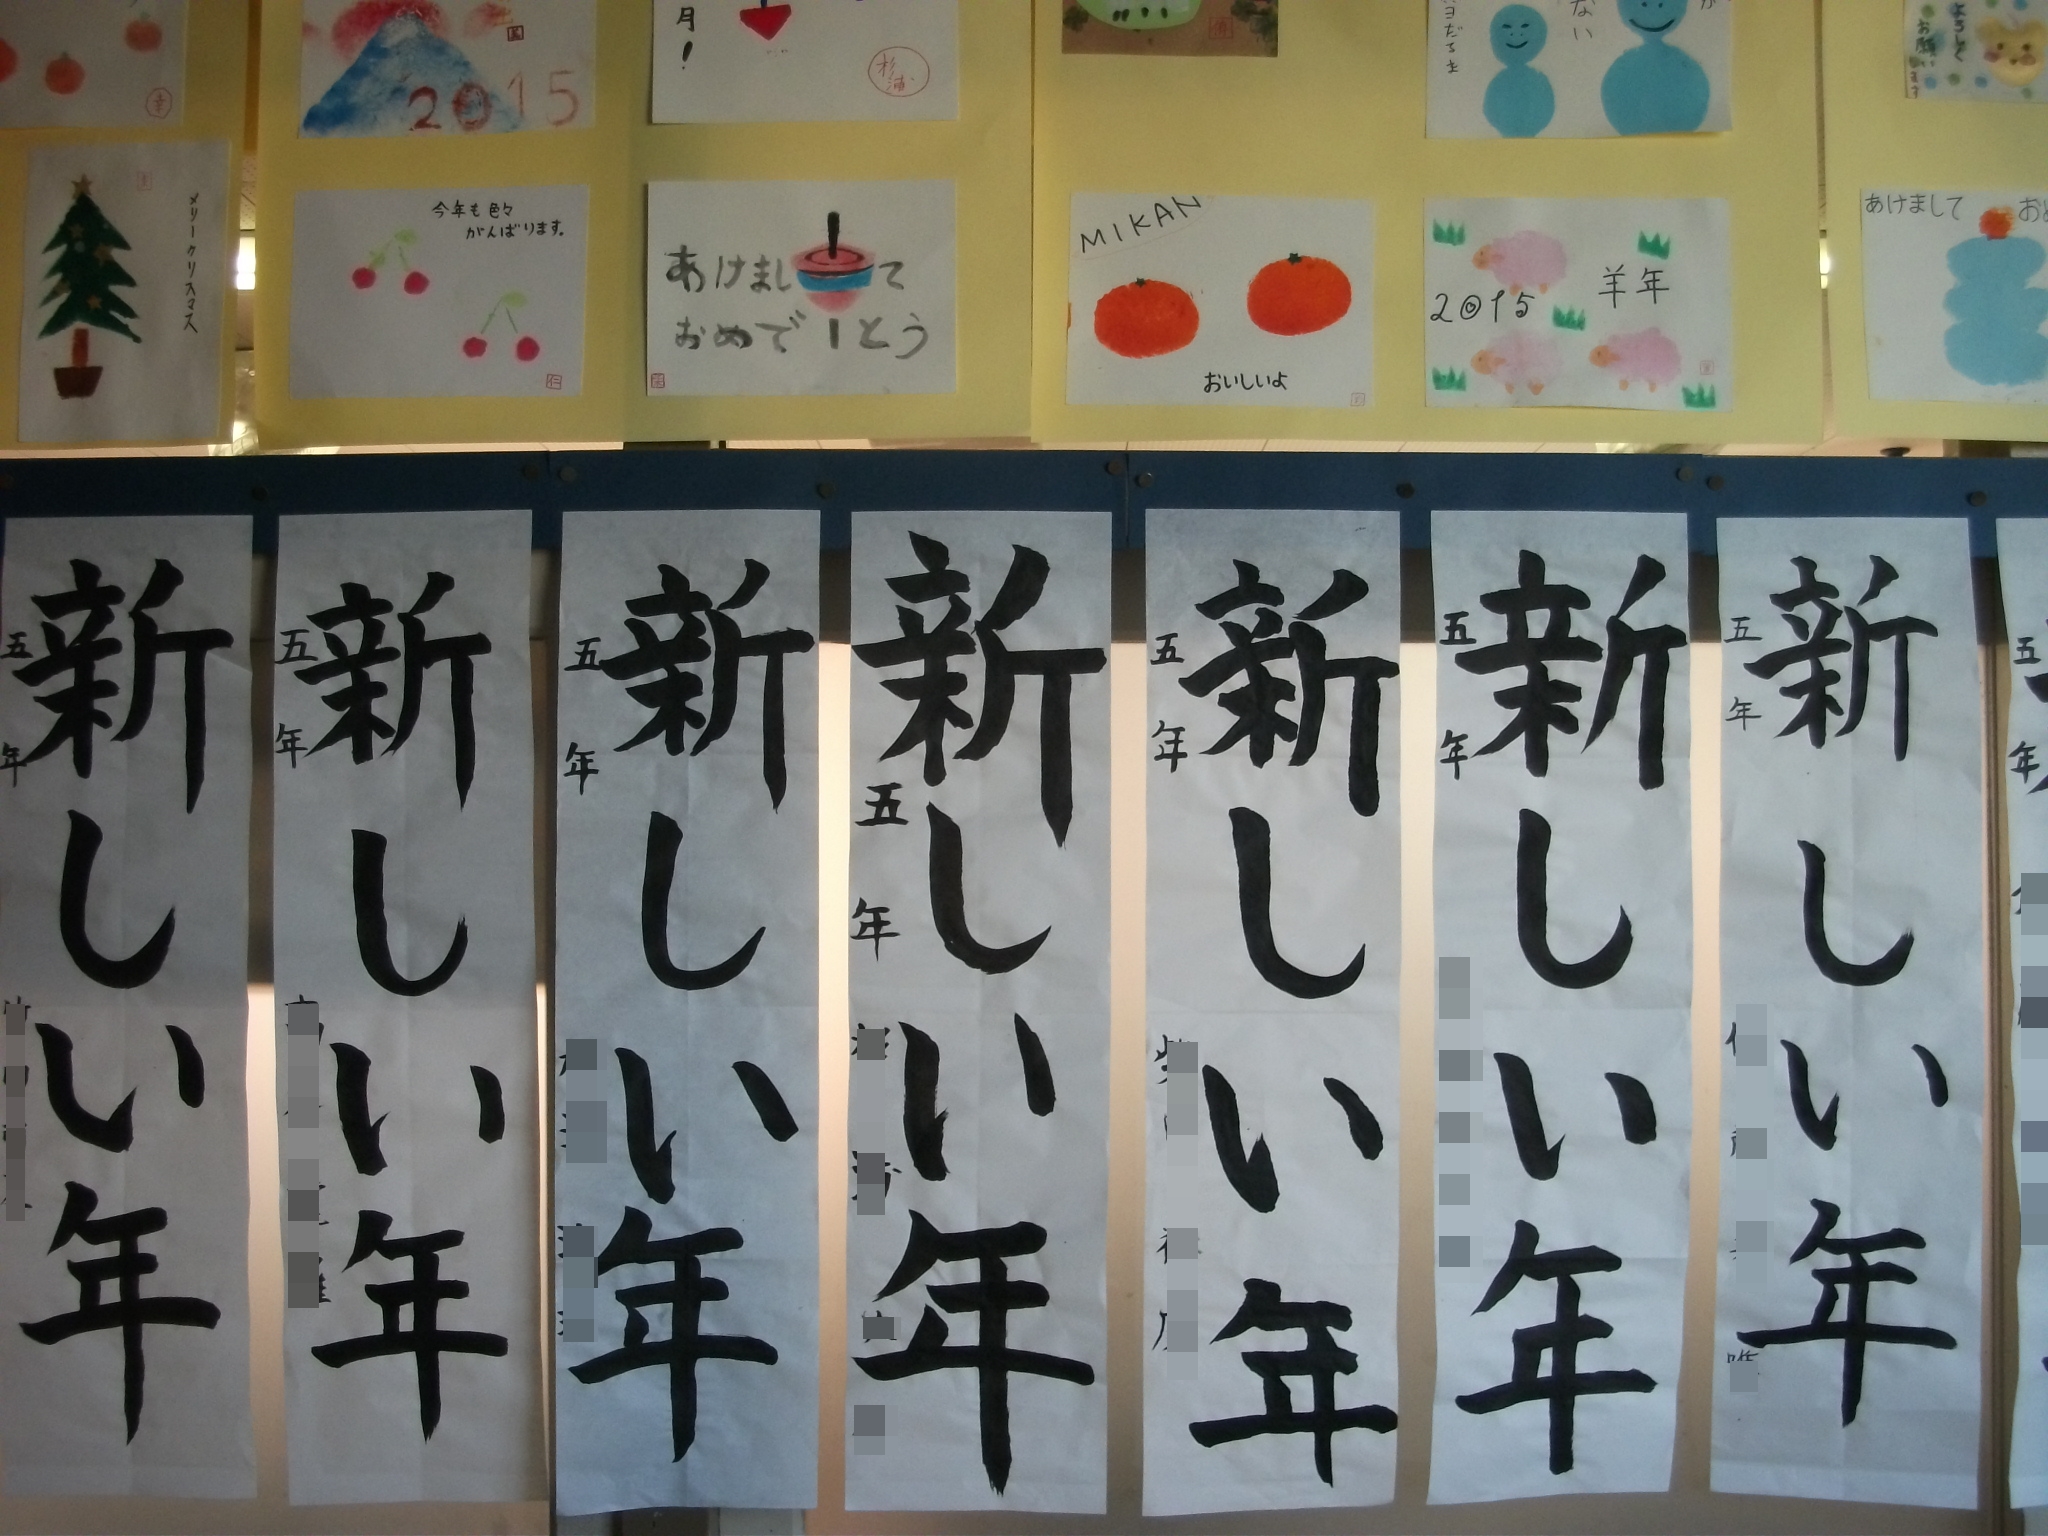 2015
月!
杉浦
ない
よろしく
お願いします
メリークリスマス
今年も色々
がんばります。
あけまして
おめでとう
MIKAN
おいしいよ
2015
羊年
あけまして
新しい年
五年
新しい年
五年
新しい年
五年
新しい年
五年
新しい年
五年
新しい年
五年
新しい年
五年
五年